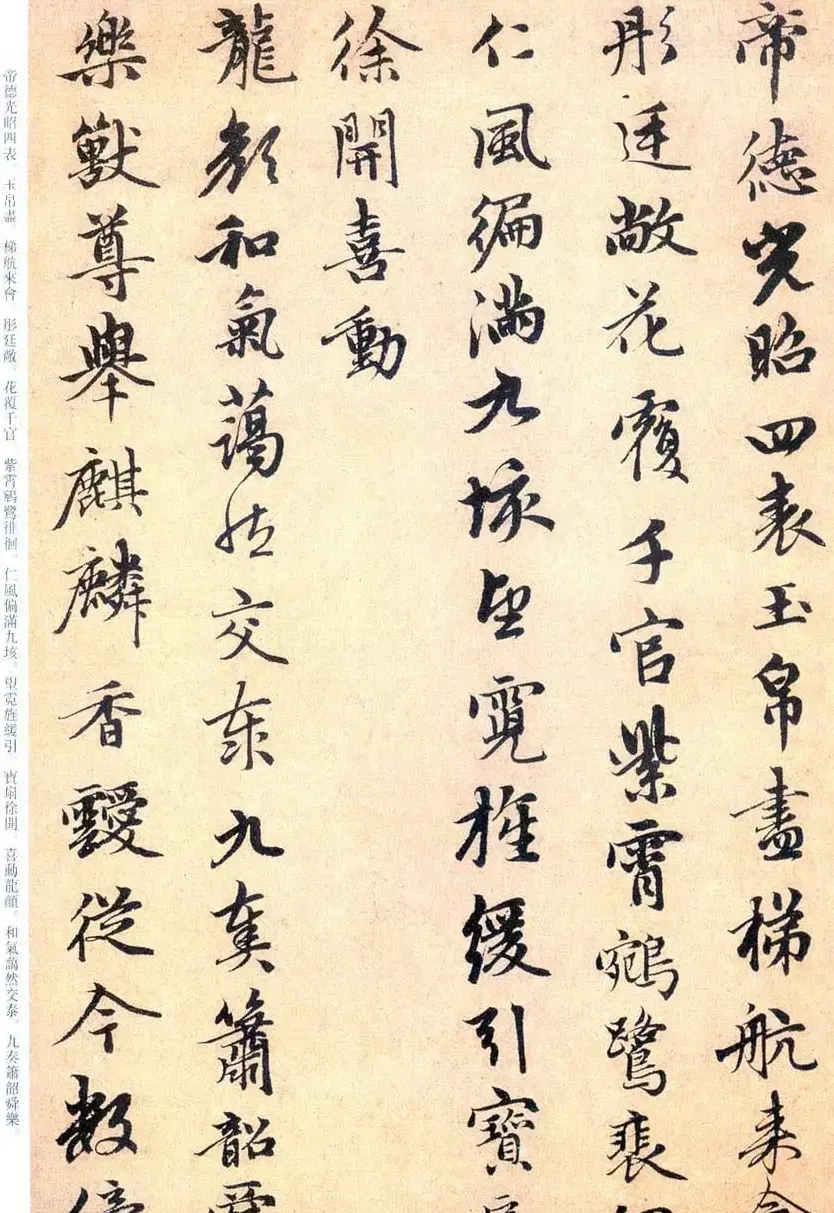 帝德光昭四表玉帛盡梯航来會
彤廷敞花覆千官紫霄鵷鷺裴徊
仁風徧满九垓望霓旌緩引寶扇
徐開喜動
龍顔和氣藹然交泰九奏簫韶舜
樂獸尊舉麒麟香靉從今數億
帝德光昭四表 玉帛盡 梯航來會 彤廷敞。花覆千官 紫霄鵷鷺徘徊。仁風偏滿九垓。望霓旌緩引 寶扇徐開。喜動龍顏。和氣藹然交泰 九奏簫韶舜樂。